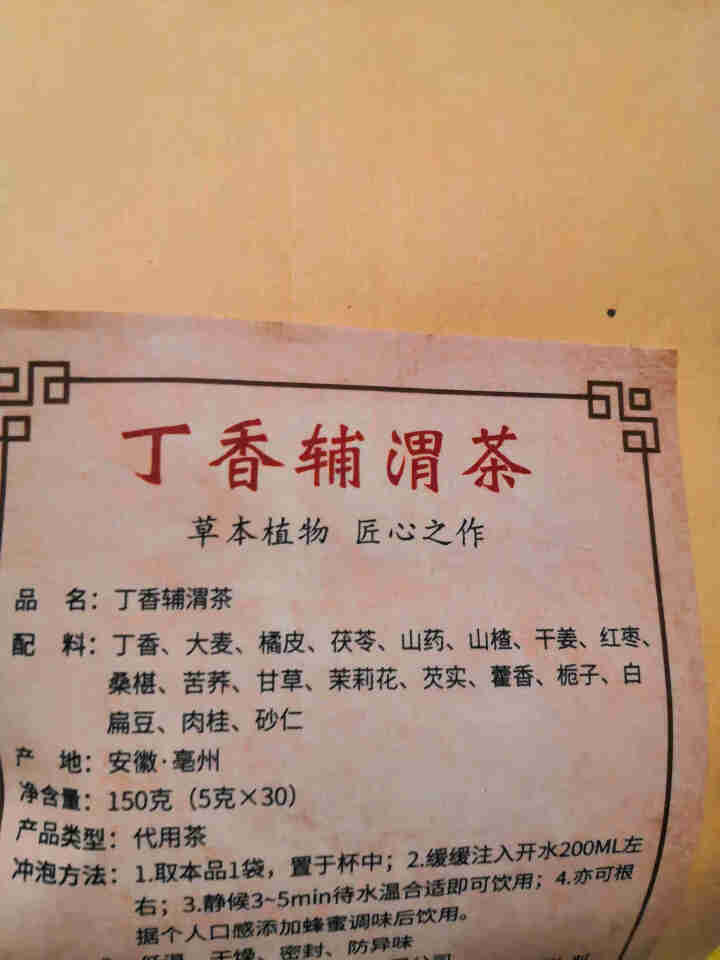 丁香辅渭茶
草本植物 匠心之作
品 名：丁香辅渭茶
配 料：丁香、大麦、橘皮、茯苓、山药、山楂、干姜、红枣、
桑椹、苦荞、甘草、茉莉花、芡实、藿香、栀子、白
扁豆、肉桂、砂仁
产 地：安徽·亳州
净含量：150克（5克×30）
产品类型：代用茶
冲泡方法：1.取本品1袋，置于杯中；2.缓缓注入开水200ML左
右；3.静候3~5min待水温合适即可饮用；4.亦可根
据个人口感添加蜂蜜调味后饮用。
低温、干燥、密封、防异味